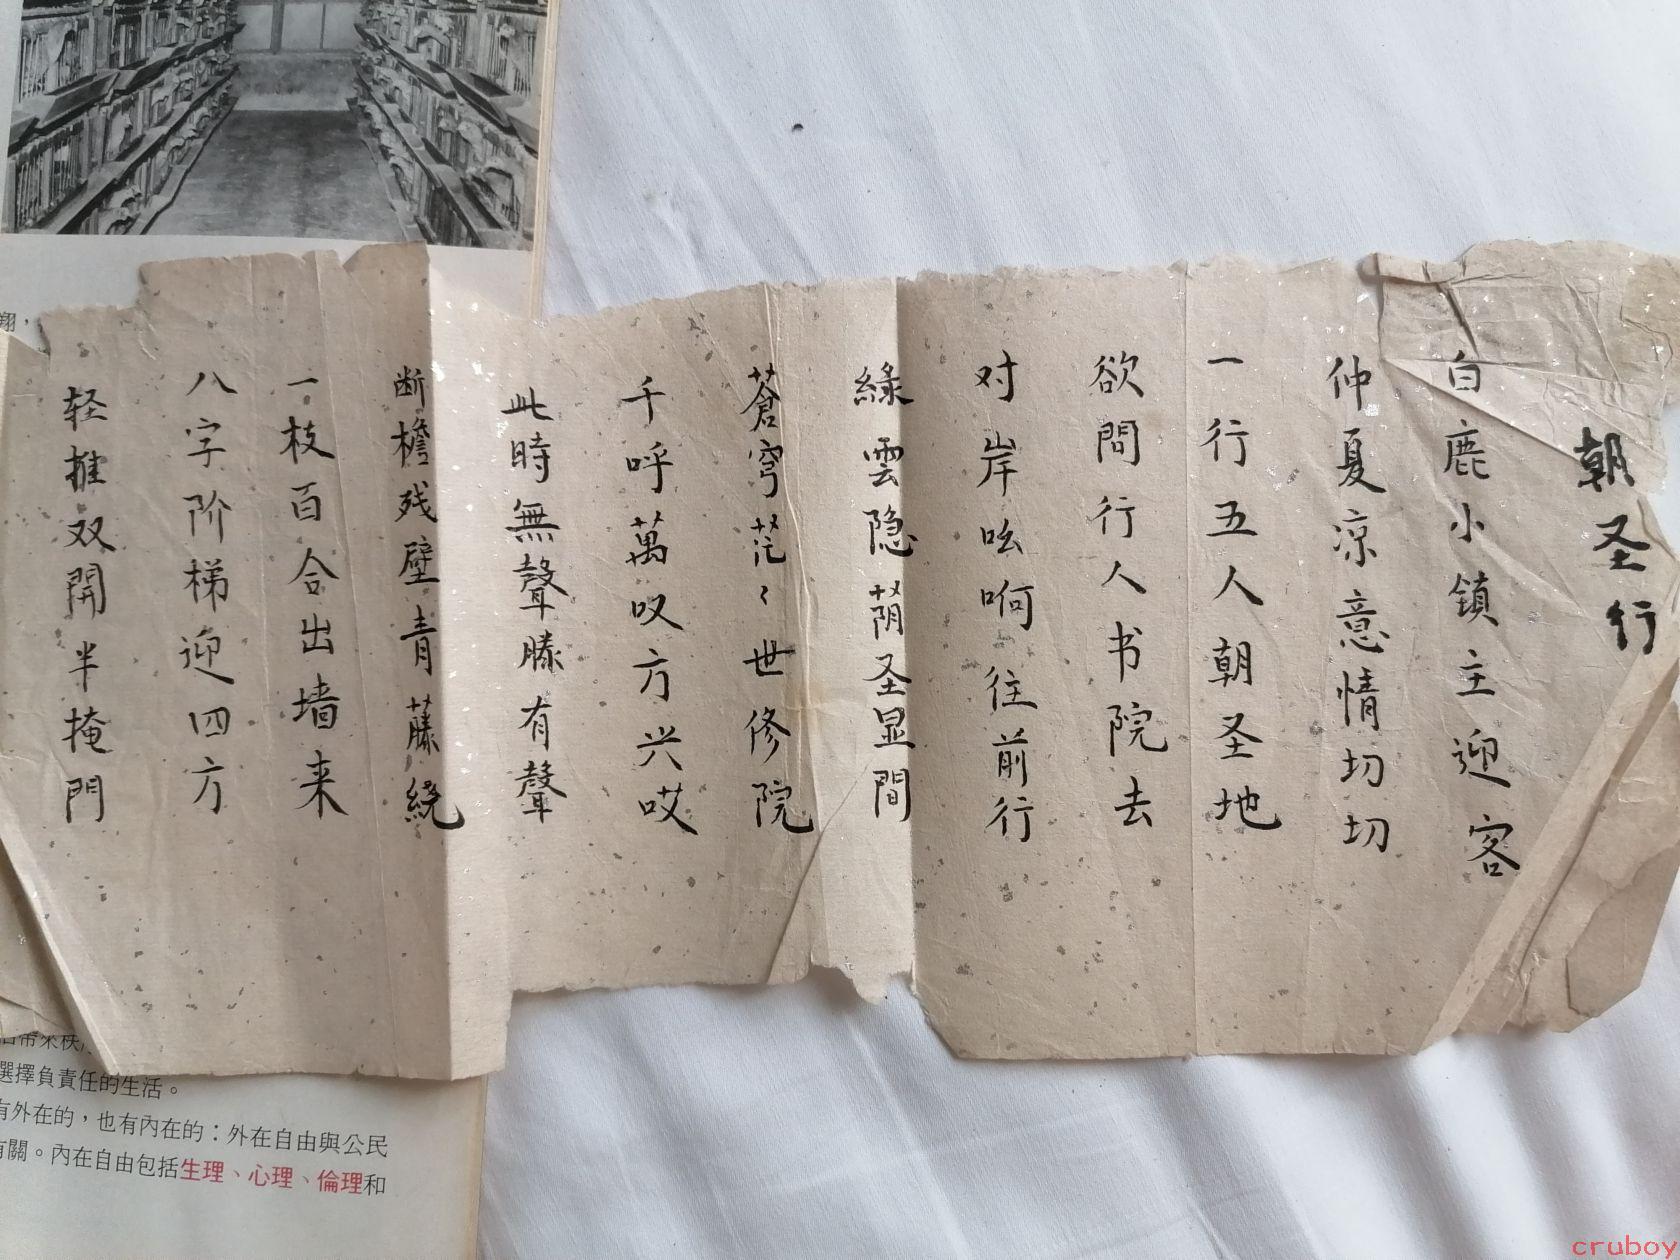 朝圣行
白鹿小镇主迎客
仲夏凉意情切切
一行五人朝圣地
欲問行人书院去
对岸吆喝往前行
綠雲隐蔭圣显間
蒼穹茫々世修院
千呼萬叹方兴哎
此時無聲勝有聲
断檐残壁青藤绕
一枝百合出墙来
八字阶梯迎四方
轻推双開半掩門
翔，
選擇負責任的生活。
有外在的，也有內在的：外在自由與公民
有關。內在自由包括生理、心理、倫理和
cruboy